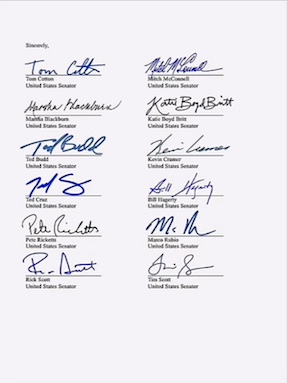 Sincerely,
Tom Cotton
Tom Cotton
United States Senator
Mitch McConnell
Mitch McConnell
United States Senator
Marsha Blackburn
Marsha Blackburn
United States Senator
Katie Boyd Britt
Katie Boyd Britt
United States Senator
Ted Budd
Ted Budd
United States Senator
Kevin Cramer
Kevin Cramer
United States Senator
Ted Cruz
United States Senator
Bill Hagerty
Bill Hagerty
United States Senator
Pete Ricketts
Pete Ricketts
United States Senator
Marco Rubio
United States Senator
Rick Scott
United States Senator
Tim Scott
United States Senator